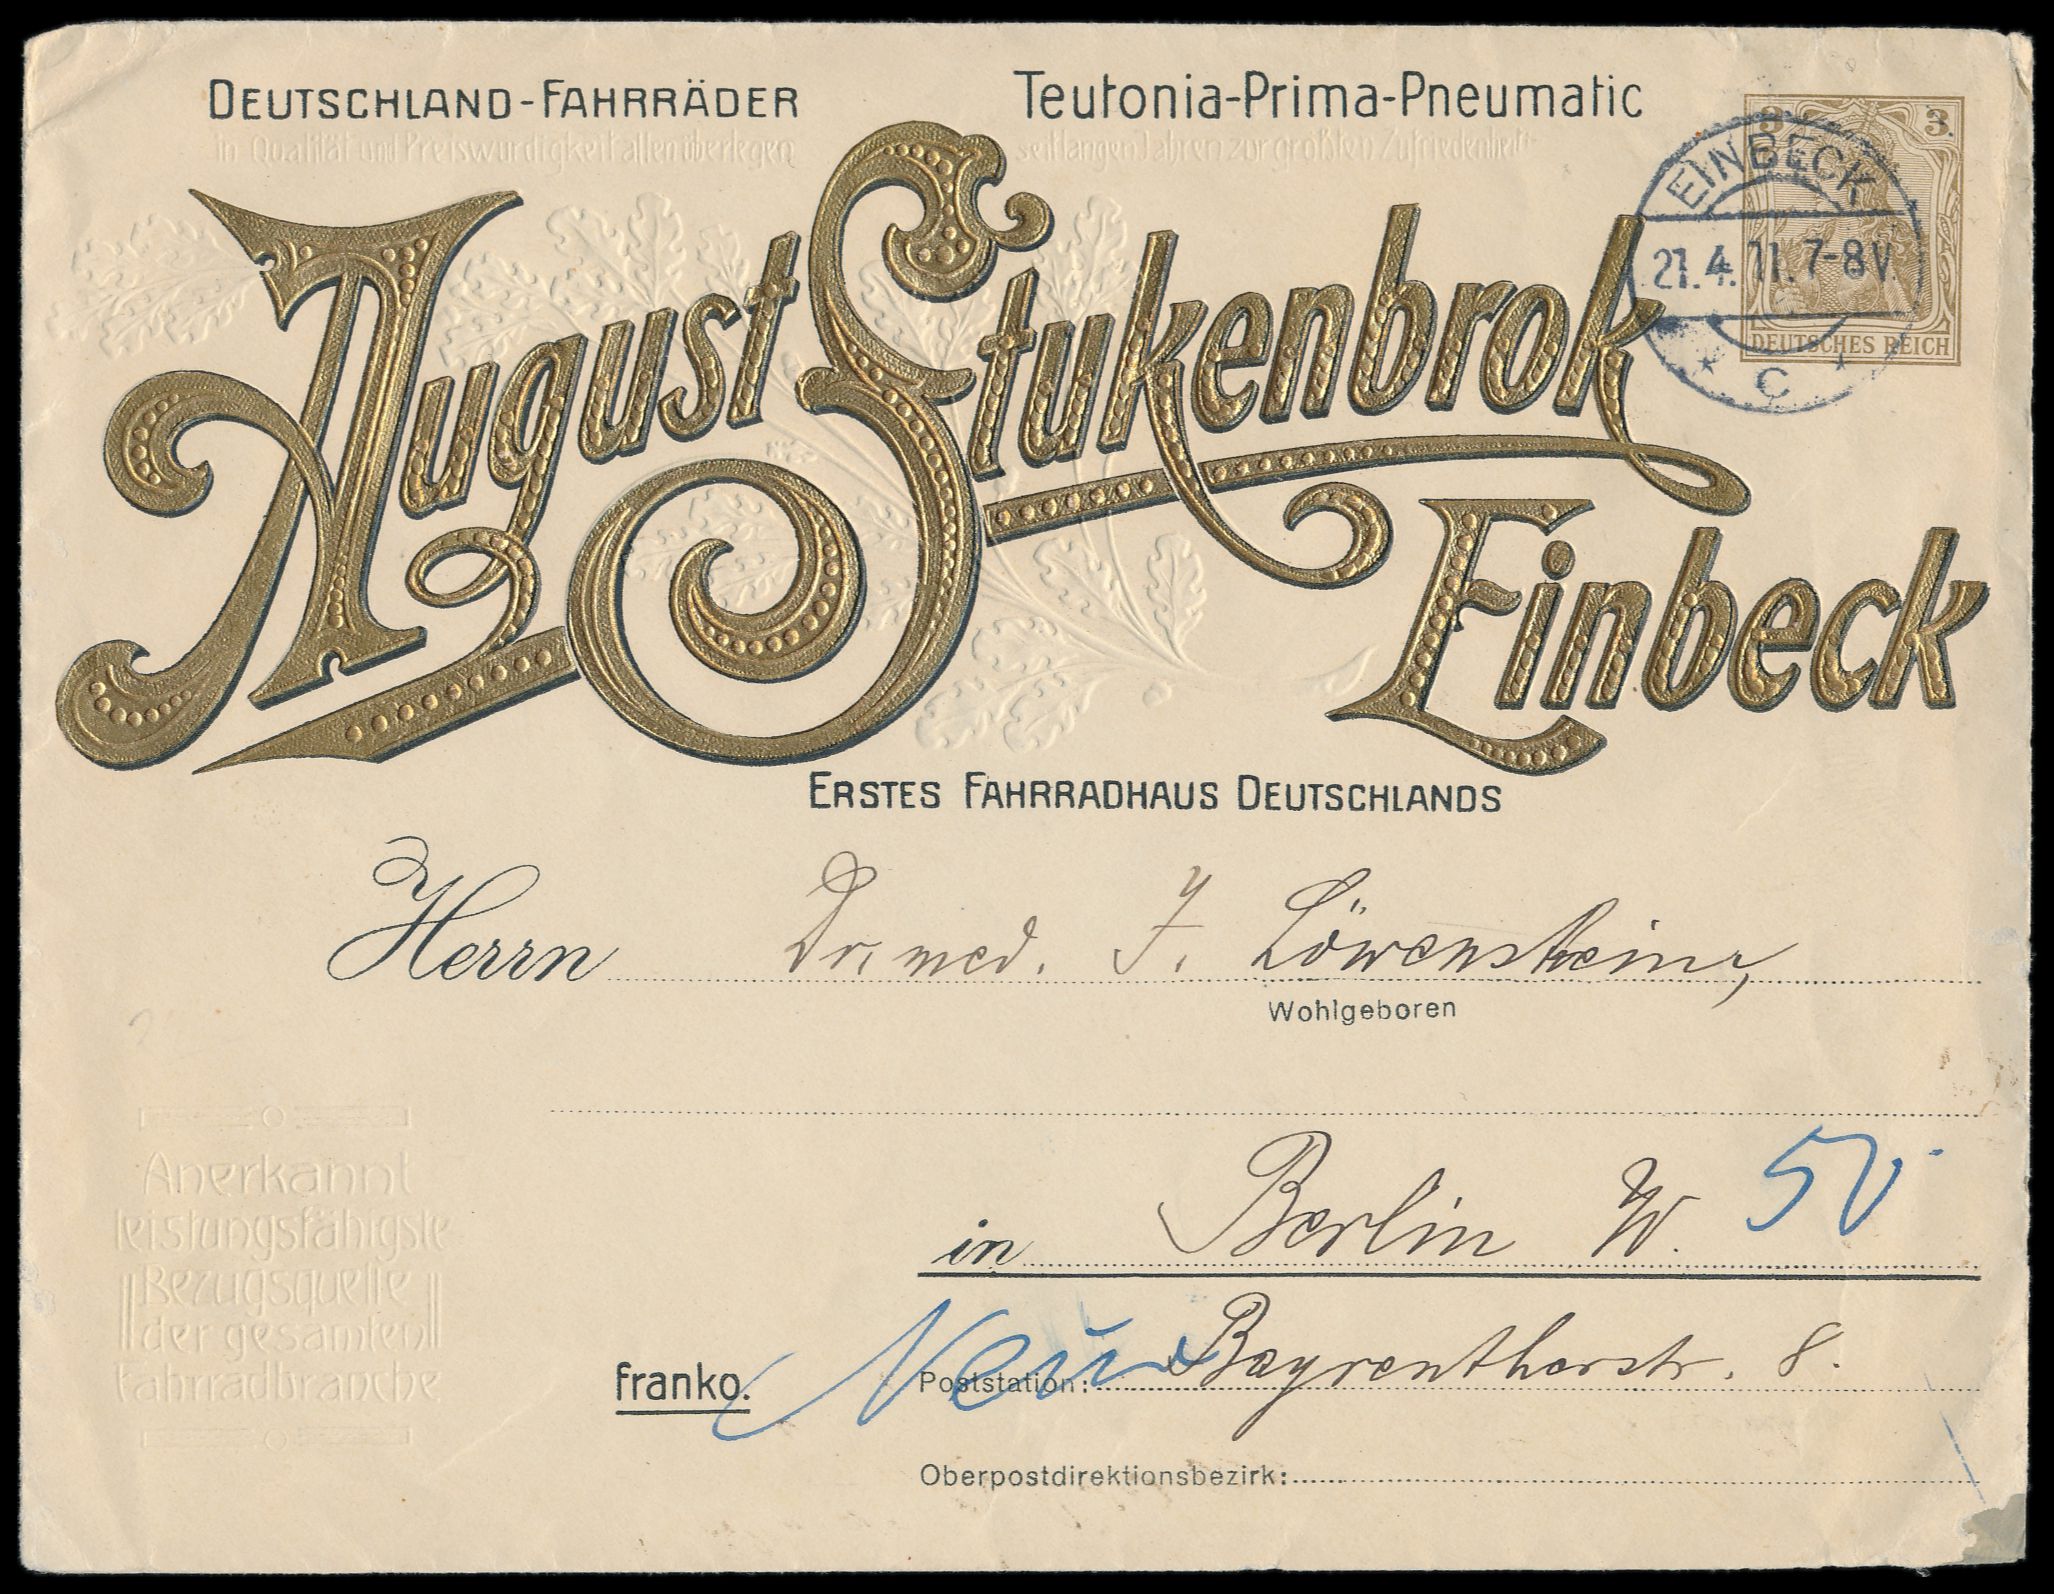 DEUTSCHLAND-FAHRRÄDER
in Qualität und Preiswürdigkeit allen überlegen
Teutonia-Prima-Pneumatic
seit langen Jahren zur größten Zufriedenheit
3 3
EINBECK
21.4.11.7-8V.
* C *
DEUTSCHES REICH
August Stukenbrok
Einbeck
ERSTES FAHRRADHAUS DEUTSCHLANDS
Herrn Dr. med. J. Löwenstein,
Wohlgeboren
in Berlin W. 50
Neu Bayreutherstr. 8.
franko.
Poststation:
Oberpostdirektionsbezirk:
Anerkannt
leistungsfähigste
Bezugsquelle
der gesamten
Fahrradbranche